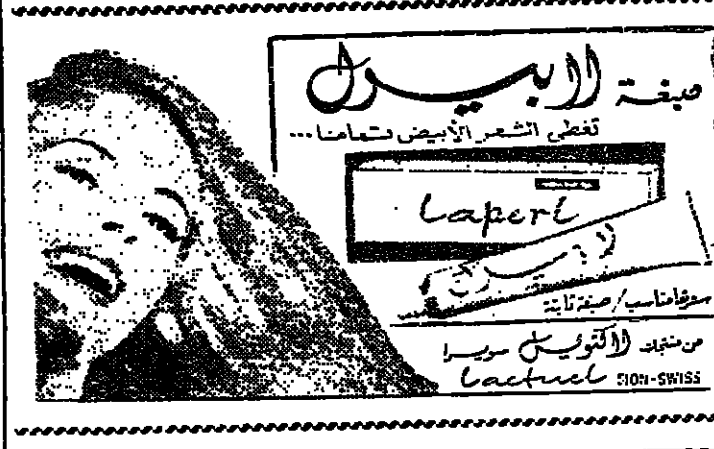 صبغة لابيرل
تغطي الشعر الأبيض تماما...
Laperl
لابيرل
سعرها مناسب/صبغة ثابتة
من منتجات لاكتويل سويسرا
Lactuel SION-SWISS